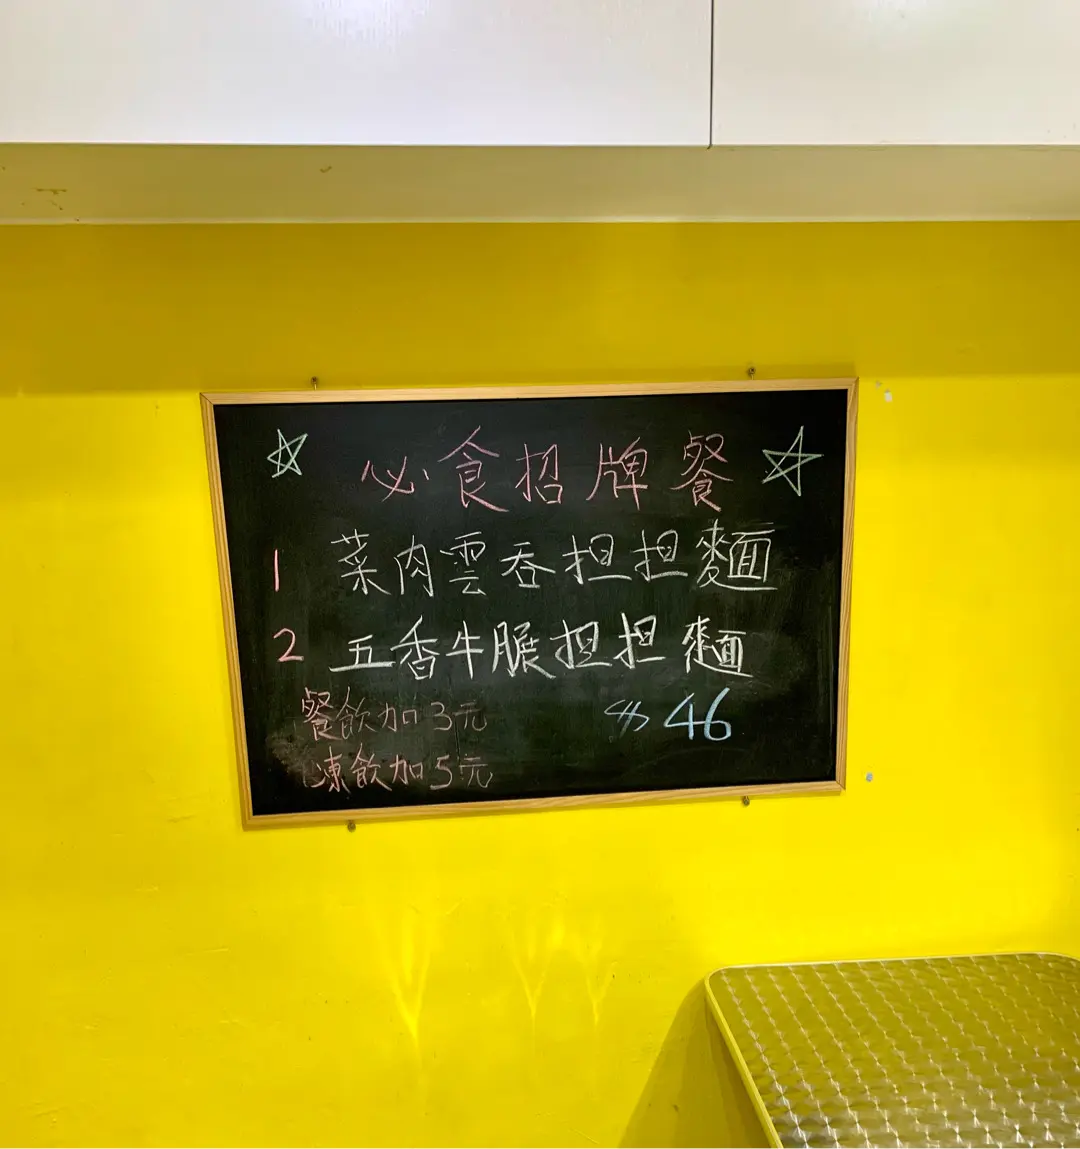 必食招牌餐
1 菜肉雲吞担担麵
2 五香牛膿担担麵
$46
餐飲加3元
凍飲加5元